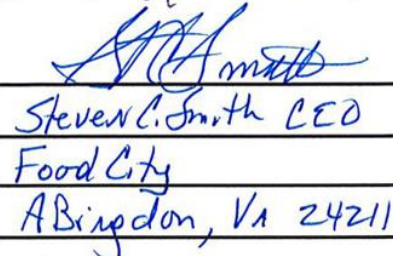 Smith
Steven C. Smith CEO
Food City
ABingdon, VA 24211